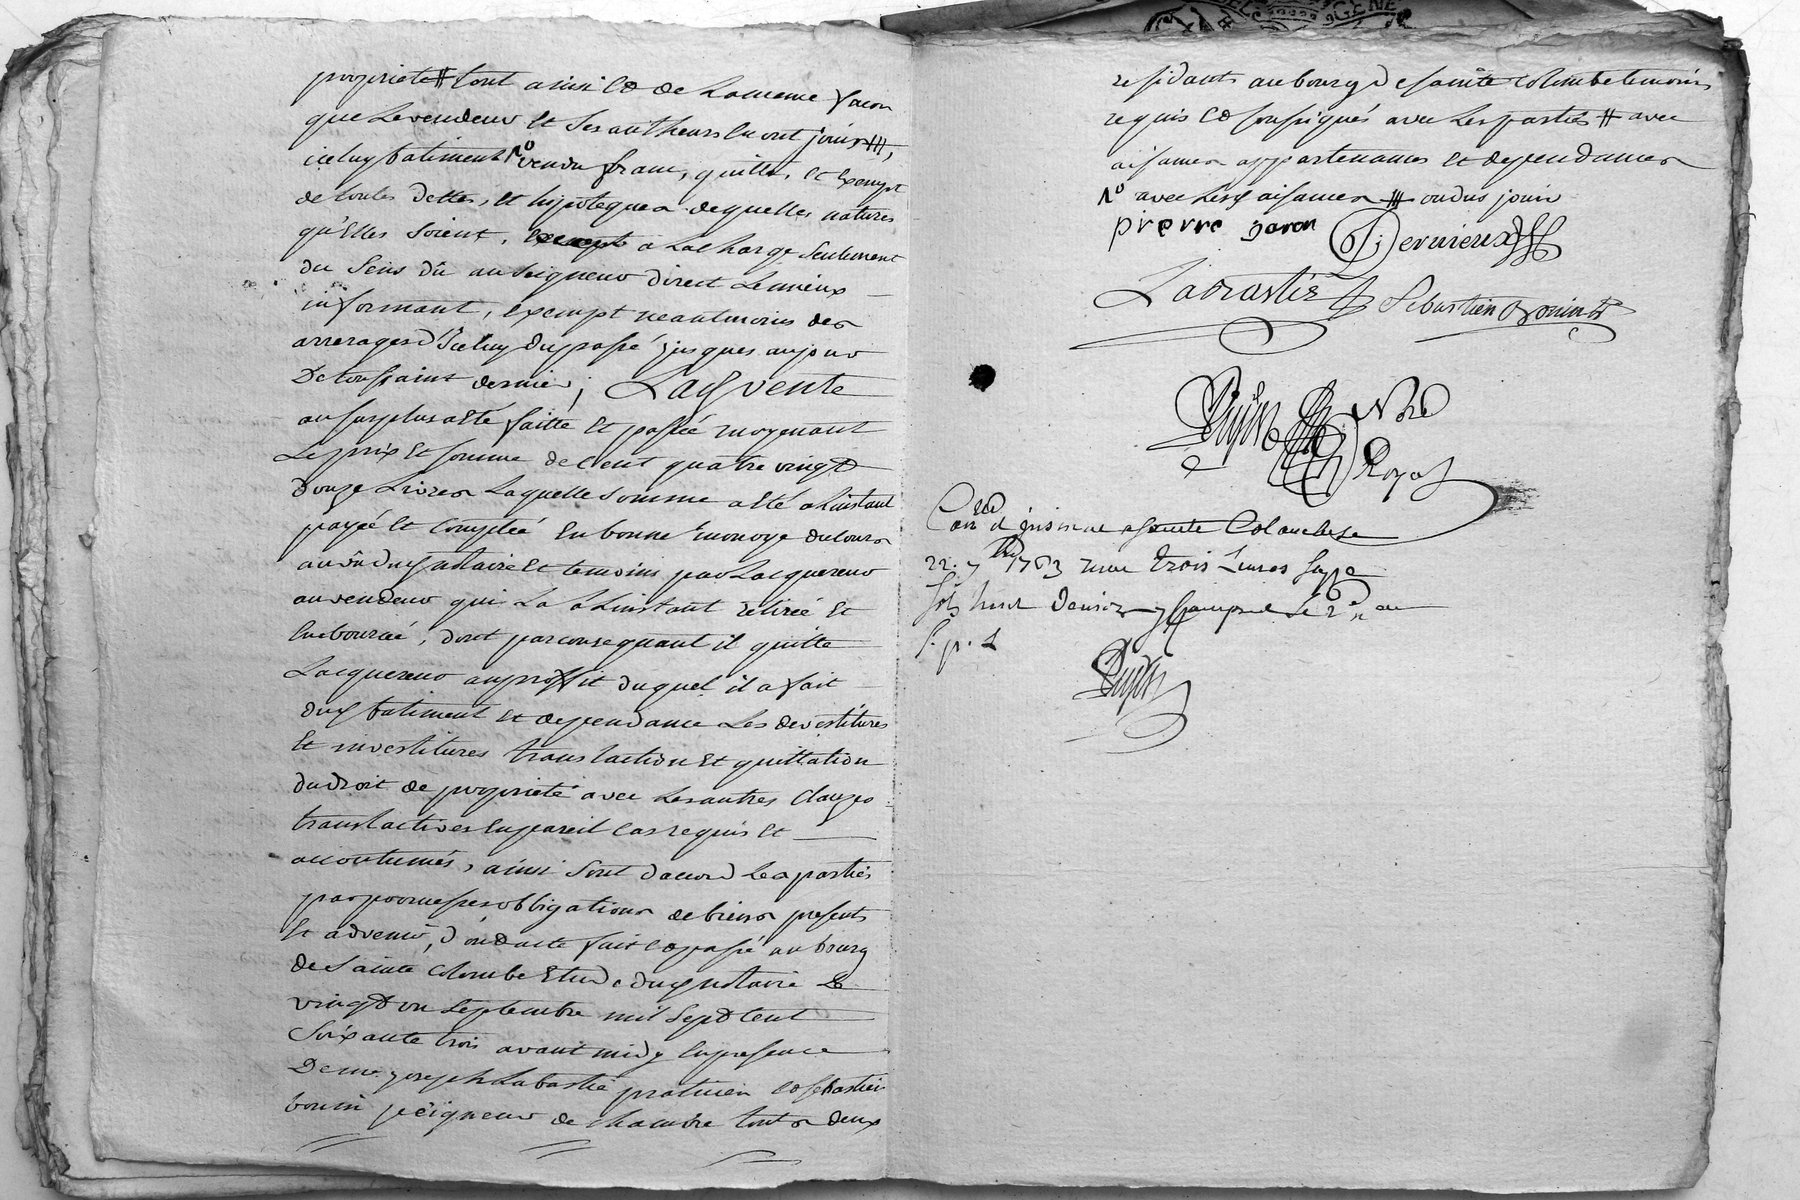 proprieté # tout ainsi et de la meme facon
que le vendeur et ses autheurs en ont joui ##,
iceluy batiment 1º vendu franc, quitte, et exempt
de toutes dettes, et hipoteques de quelles natures
qu'elles soient, a la charge seulement
du sens dû au seigneur direct le mieux
informant, exempt neantmoins des
arrerages d'iceluy du passé jusques au jour
de toussaint dernier; Laditte vente
au surplus a été faitte et passée moyenant
le prix et somme de cent quatre vingt
douze livres laquelle somme a été a l'instant
payée et comptée en bonne monoye du cours
au vû dud notaire et temoins par lacquereur
au vendeur qui la a l'instant retirée et
emboursé, dont par consequant il quitte
lacquereur au proffit duquel il a fait
dud batiment et dependance les devestitures
et investitures translaction et quittation
du droit de proprieté avec les autres clauses
translactives en pareil cas requis et
accoutumés, ainsi sont d'accord les parties
par promesses obligations de biens presents
et advenir, dont acte fait et passé au bourg
de sainte colombe etude dud notaire le
vingt un septembre mil sept cent
soixante trois avant midy en presence
de me joseph Labastie praticien et sebastien
bonin peigneur de chambre tout deux
residants au bourg de sainte colombe temoins
requis et soussignés avec les parties # avec
aisances appartenances et dependances
1º avec lesd aisances ## ou dus jouir
pierre
Dervieux
Labastie Sebastien bonin
Dujin Nore
Royal
Con.lé et insinué a sainte Colombe le
22. 7bre 1763 trois Livres
sols
Dujin